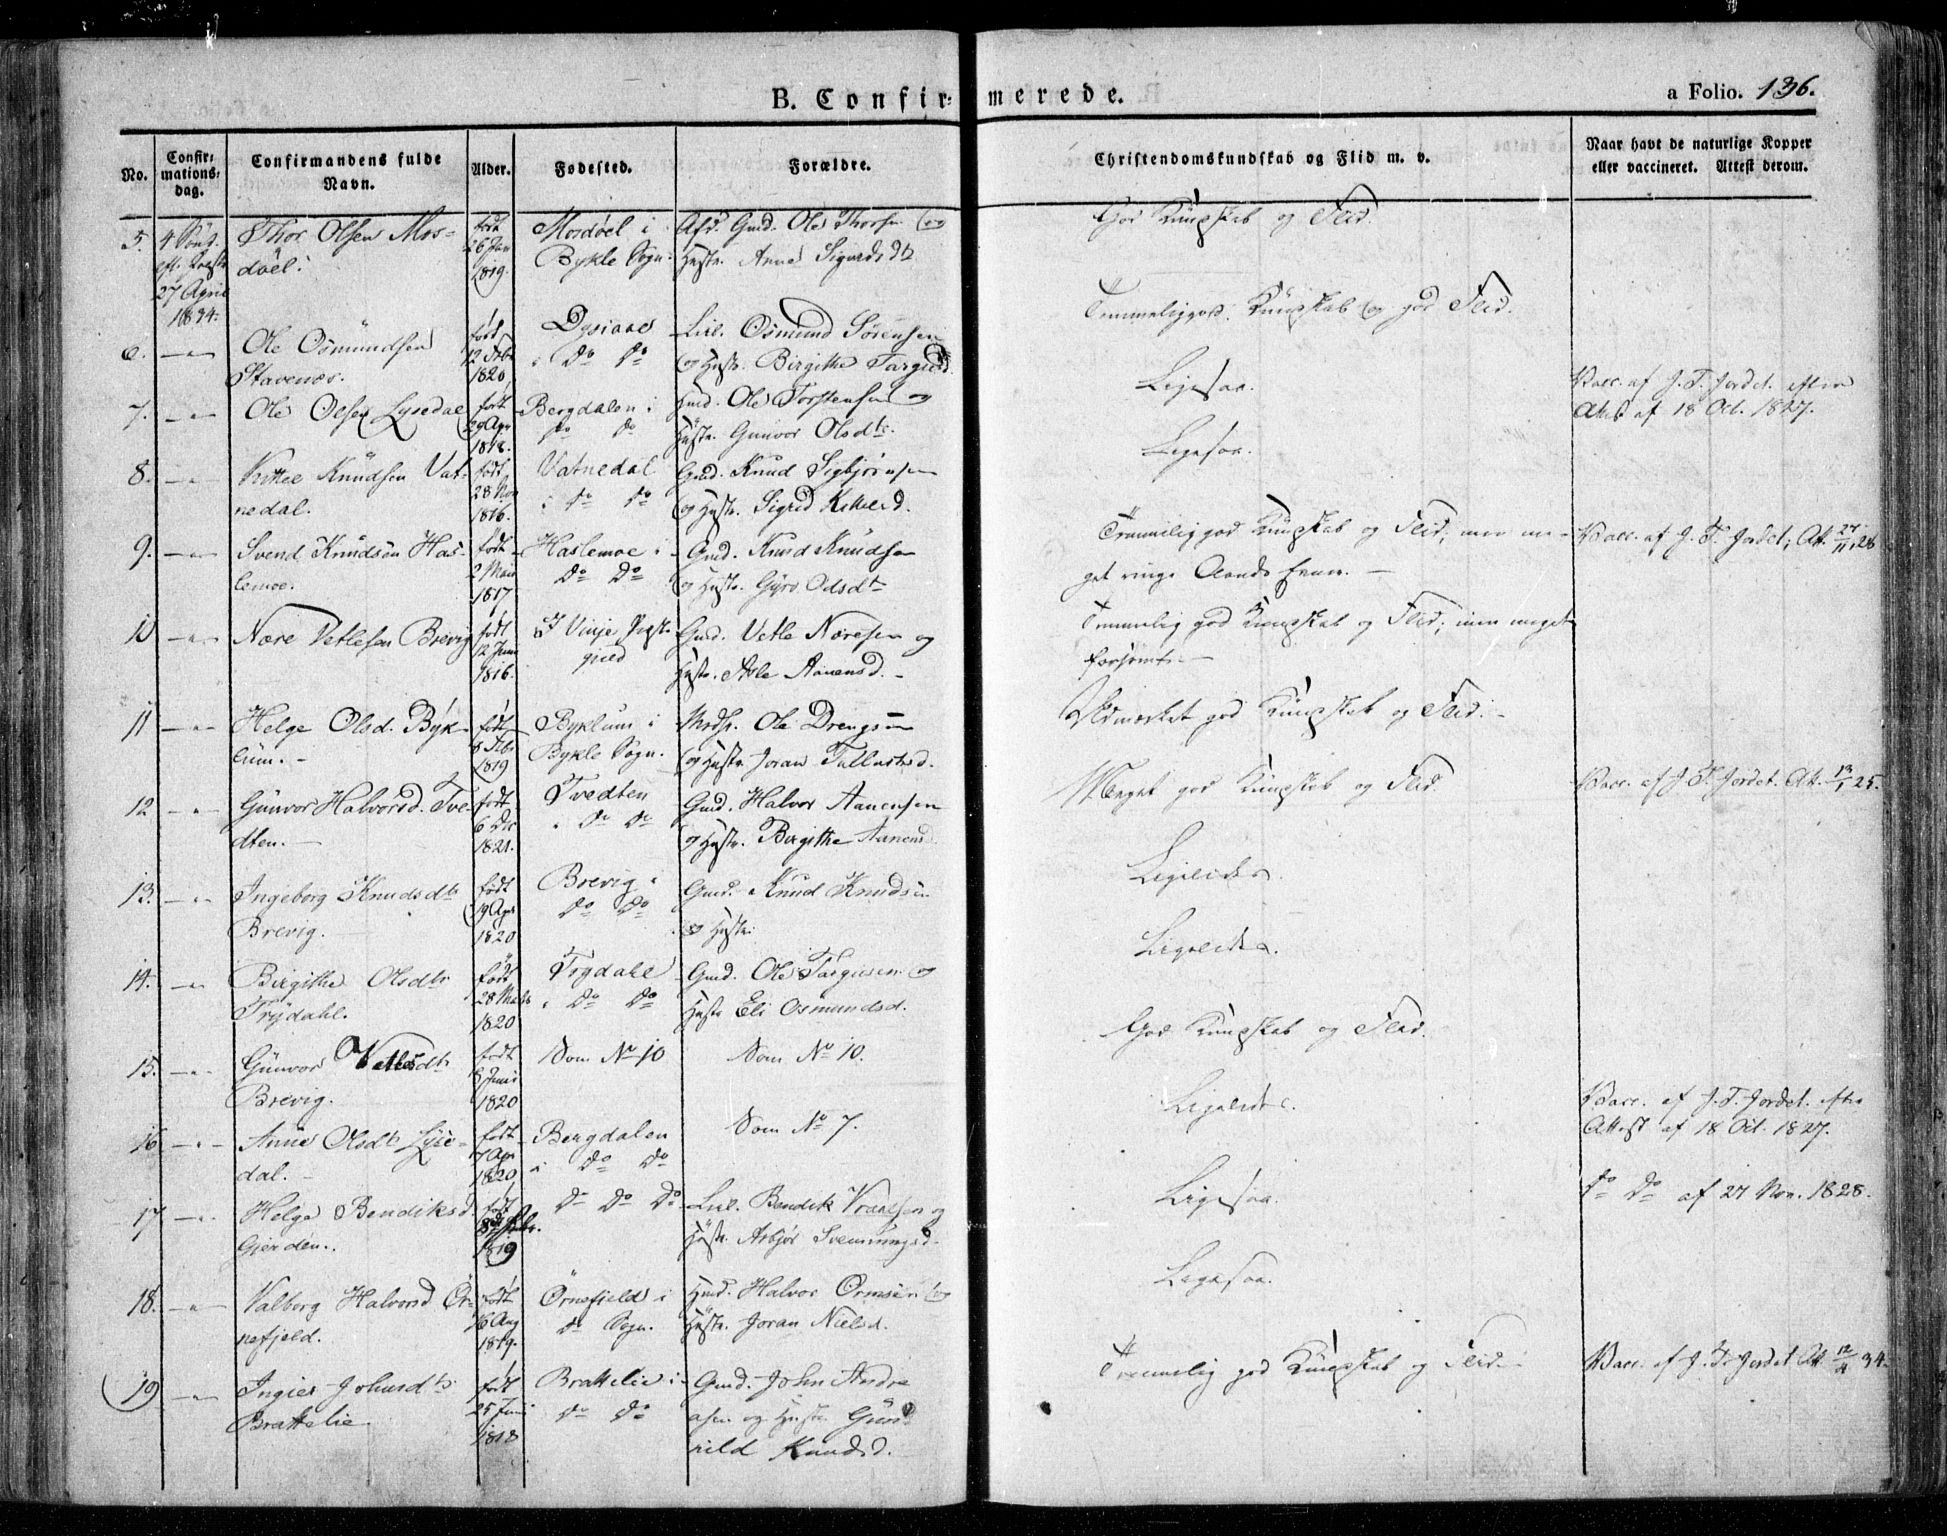 B. Confirmerede.
a Folio. 136.
No.
Confirmationsdag.
Confirmandens fulde Navn.
Alder.
Fødested.
Forældre.
Christendomskundskab og Flid m. v.
Naar havt de naturlige Kopper eller vaccineret. Attest derom.
5. 4 Sønt. Thor Olsen Mos- født Mosdøel i Afd. Gmd. Ole Thorsen og God Kundskab og Flid.
eft. Paaske døel. 26 Jan Bykle Sogn. Hustr. Anne Sigurdsdt
27 April 1819.
1834.
Temmelig god Kundskab og god Flid.
6. — " — Ole Osmundsen født Lisl. Osmund Sørensen
Stavenes. 12 Feb 1820 i Do Do og Hustr. Birgithe Targiesd.
Ligesaa. Vacc. af J. T. Jordet. efter
7. — " — Ole Olsen Lysedal født Bergdalen i Gmd. Ole Torstensen og
29 Apr Do Do Hustr. Gunvor Olsdtr.
Attest af 18 Oct. 1827.
Ligesaa.
8. — " — Kittel Knudsen Vat- født Vatnedal Gmd. Knud Sigbjørnsen
nedal. 28 Nov 1816. i Do Do og Hustr. Sigrid Kittelsd.
Temmelig god Kundskab og Flid; men me- Vacc. af J. T. Jordet; Att. 27/11 28
9. — " — Svend Knudsen Has- født Haslemoe i Gmd. Knud Knudsen
lemoe. 2 Mai 1817 Do Do og Hustr. Gyro Olsdt
get ringe Aands Evner. —
10 — " — Nære Vetlesen Brevig født I Vinje Præste Gmd. Vetle Næresen og
12 Juni 1816. gjeld Hustr. Aase Aanensd. —
Temmelig god Kundskab og Flid; men meget
forsømt. —
11 — " — Helge Olsd. Byk- født Byklum i Ole Drengsen
lum. — 8 Feb 1819 Bykle Sogn. og Hustr. Joran Tallevsd.
Udmærket god Kundskab og Flid. —
12 — " — Gunvor Halvorsd. Tve- født Tvedten Gmd. Halvor Aanensen
dten. — 6 Dec 1821. i Do Do og Hustr. Birgithe Aanensd
Meget god Kundskab og Flid. Vacc. af J. T. Jordet. Att. 13/1 25.
13. — " — Ingeborg Knudsdtr født Brevig i Gmd. Knud Knudsen
Brevig. 19 Apr 1820 Do Do og Hustr.
Ligeledes.
14. — " — Birgithe Olsdtr født Trydahl Gmd. Ole Targiesen og
Trydahl. 28 Marts 1820 i Do Do Hustr Eli Osmundsd.
Ligeledes.
15. — " — Gunvor Vetlesdtr født Som No 10 Som No 10.
Brevig. 8 Juni 1820
God Kundskab og Flid.
16 — " — Anne Olsdtr Lyse- født Bergdalen Som No 7.
dal. — 7 Apr 1820 i Do Do
Ligeledes. Vacc. af J. T. Jordet. efter
Attest af 18 Oct. 1827.
17 — " — Helge Bendiksd. født Do Do Do Lisl. Bendik Vraalsen og
Gjerden. 1819 Hustr. Asbjør Svenningsd.
Ligesaa. Do Do af 27 Nov. 1828.
18. — " — Valborg Halvorsd Ör- født Örnefjeld i Hmd. Halvor Ormsen og
nefjeld. 16 Aug 1819. Do Sogn. Hustr. Joran Nielsd.
Ligesaa.
19 — " — Ingier Johnsdtr født Brattelie i Gmd. John Andre
Brattelie. 25 Juni 1818 Do Do asen og Hustr. Gun-
hild Knudsd.
Temmelig god Kundskab og Flid. — Vacc. af J. T. Jordet Att 12/4 34.